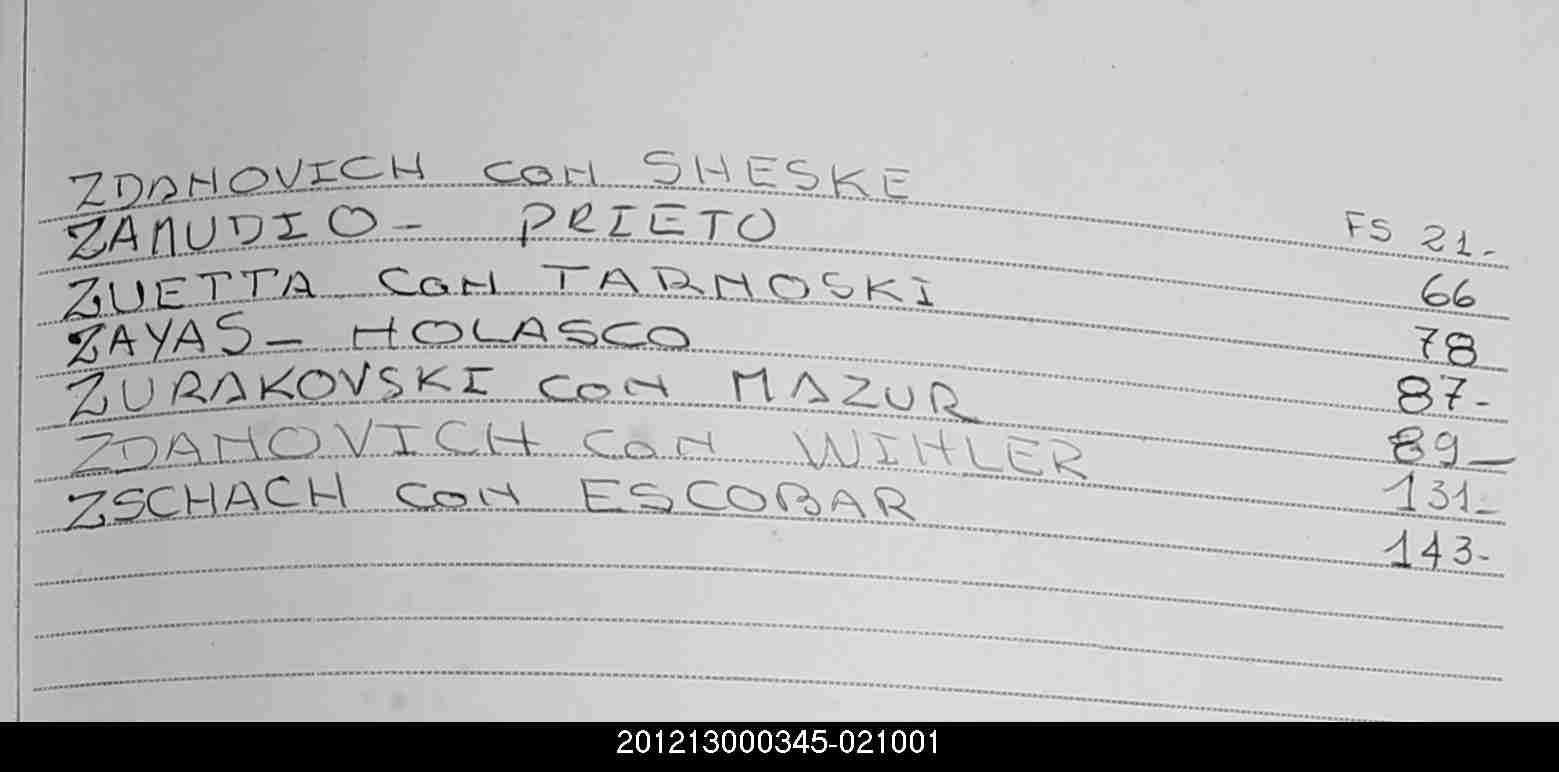 ZDANOVICH CON SHESKE FS 21-
ZAMUDIO - PRIETO 66
ZUETTA CON TARNOSKI 78
ZAYAS - NOLASCO 87-
ZURAKOVSKI CON MAZUR 89-
ZDANOVICH CON WINLER 131-
ZSCHACH CON ESCOBAR 143-
201213000345-021001